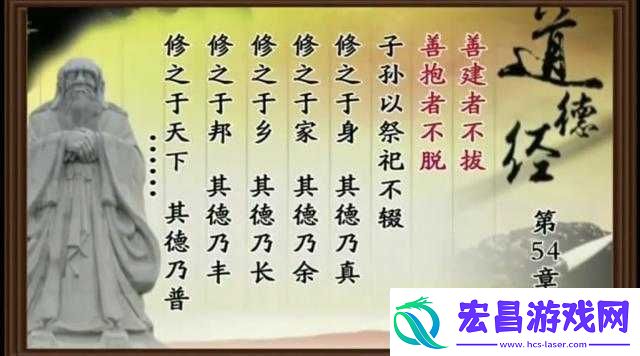 道德经
第54章
善建者不拔
善抱者不脱
子孙以祭祀不辍
修之于身 其德乃真
修之于家 其德乃余
修之于乡 其德乃长
修之于邦 其德乃丰
修之于天下 其德乃普
……
宏昌游戏网
www.hcs-laser.com